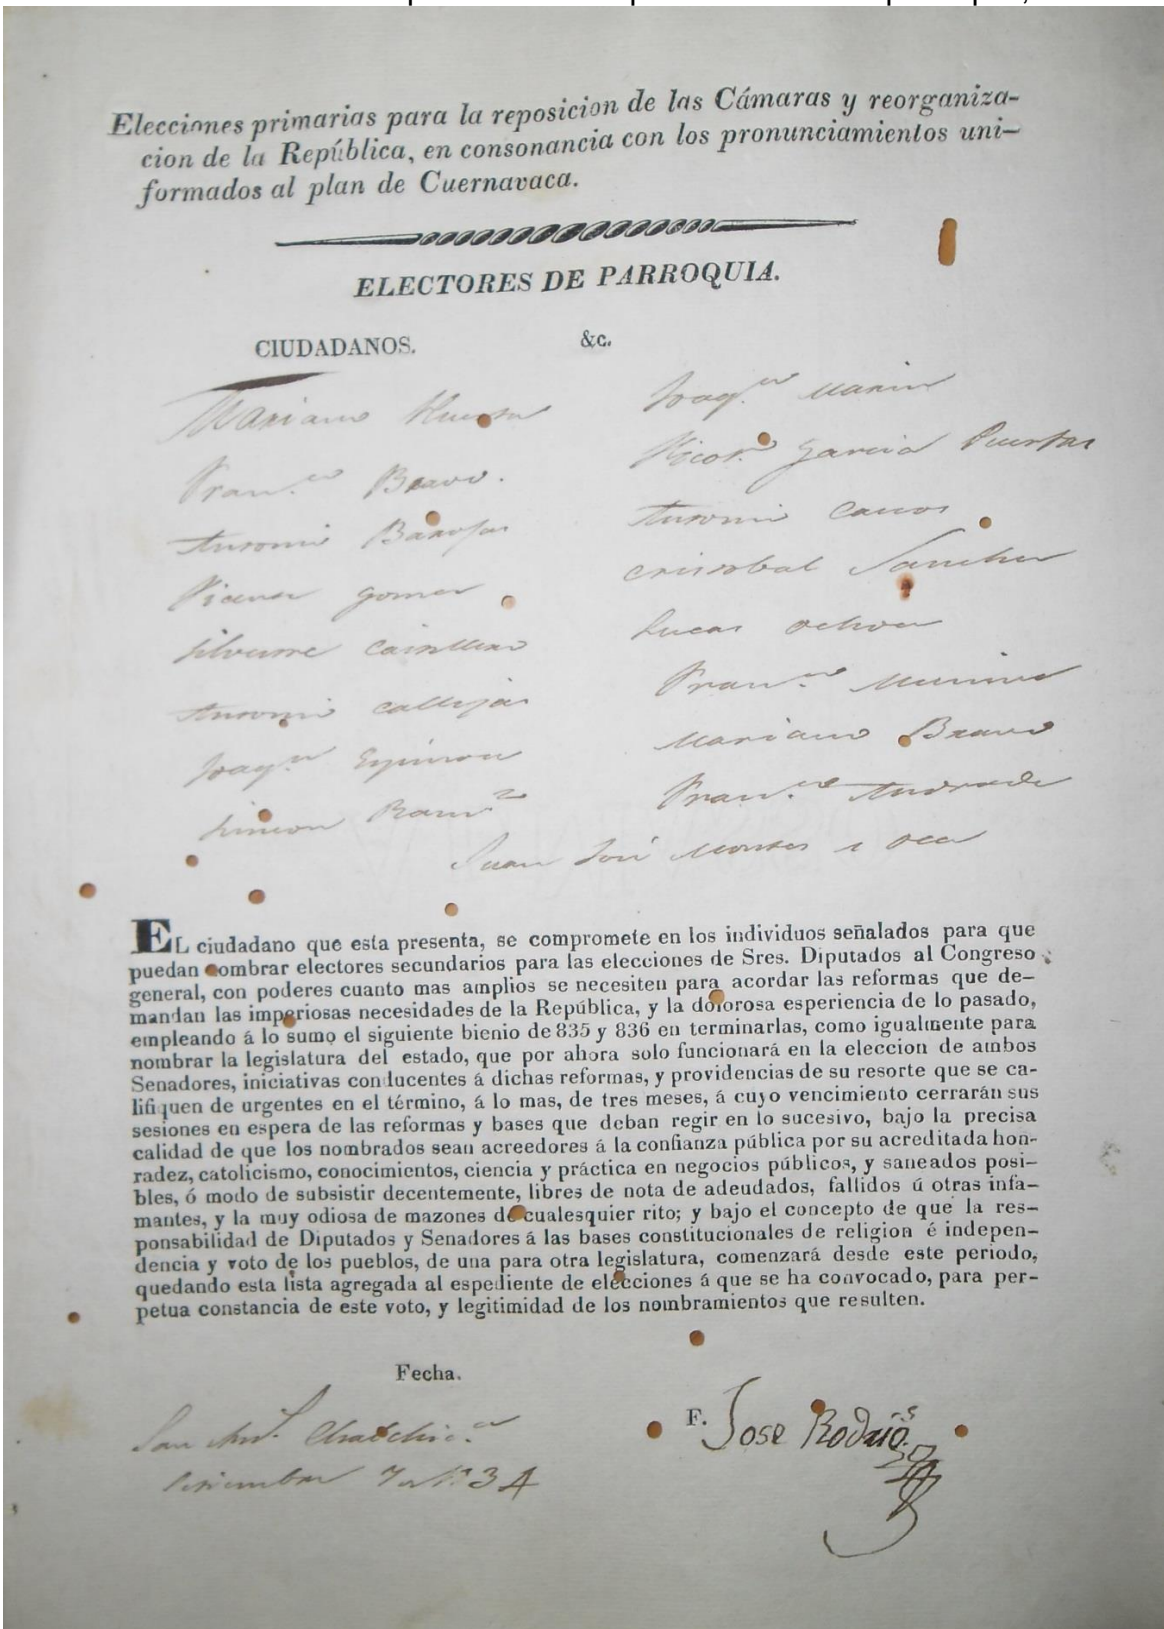 Elecciones primarias para la reposicion de las Cámaras y reorganiza-
cion de la República, en consonancia con los pronunciamientos uni-
formados al plan de Cuernavaca.
ELECTORES DE PARROQUIA.
CIUDADANOS. &c.
Mariano Huerta
Fran.co Bravo.
Antonio
Vicente Gomez
Silvestre
Antonio Callejas
Joaq.n Espinosa
Simon Ram.z
Joaq.n Marin
Garcia Puertas
Antonio
Cristobal Sanchez
Lucas Ochoa
Fran.co
Mariano Bravo
Fran.co Andrade
Juan José Montes
EL ciudadano que esta presenta, se compromete en los individuos señalados para que
puedan nombrar electores secundarios para las elecciones de Sres. Diputados al Congreso
general, con poderes cuanto mas amplios se necesiten para acordar las reformas que de-
mandan las imperiosas necesidades de la República, y la dolorosa esperiencia de lo pasado,
empleando á lo sumo el siguiente bienio de 835 y 836 en terminarlas, como igualmente para
nombrar la legislatura del estado, que por ahora solo funcionará en la eleccion de ambos
Senadores, iniciativas conducentes á dichas reformas, y providencias de su resorte que se ca-
lifiquen de urgentes en el término, á lo mas, de tres meses, á cuyo vencimiento cerrarán sus
sesiones en espera de las reformas y bases que deban regir en lo sucesivo, bajo la precisa
calidad de que los nombrados sean acreedores á la confianza pública por su acreditada hon-
radez, catolicismo, conocimientos, ciencia y práctica en negocios públicos, y saneados posi-
bles, ó modo de subsistir decentemente, libres de nota de adeudados, fallidos ú otras infa-
mantes, y la muy odiosa de mazones de cualesquier rito; y bajo el concepto de que la res-
ponsabilidad de Diputados y Senadores á las bases constitucionales de religion é indepen-
dencia y voto de los pueblos, de una para otra legislatura, comenzará desde este periodo,
quedando esta lista agregada al espediente de elecciones á que se ha convocado, para per-
petua constancia de este voto, y legitimidad de los nombramientos que resulten.
Fecha.
San
34
F. Jose Rodrig.s